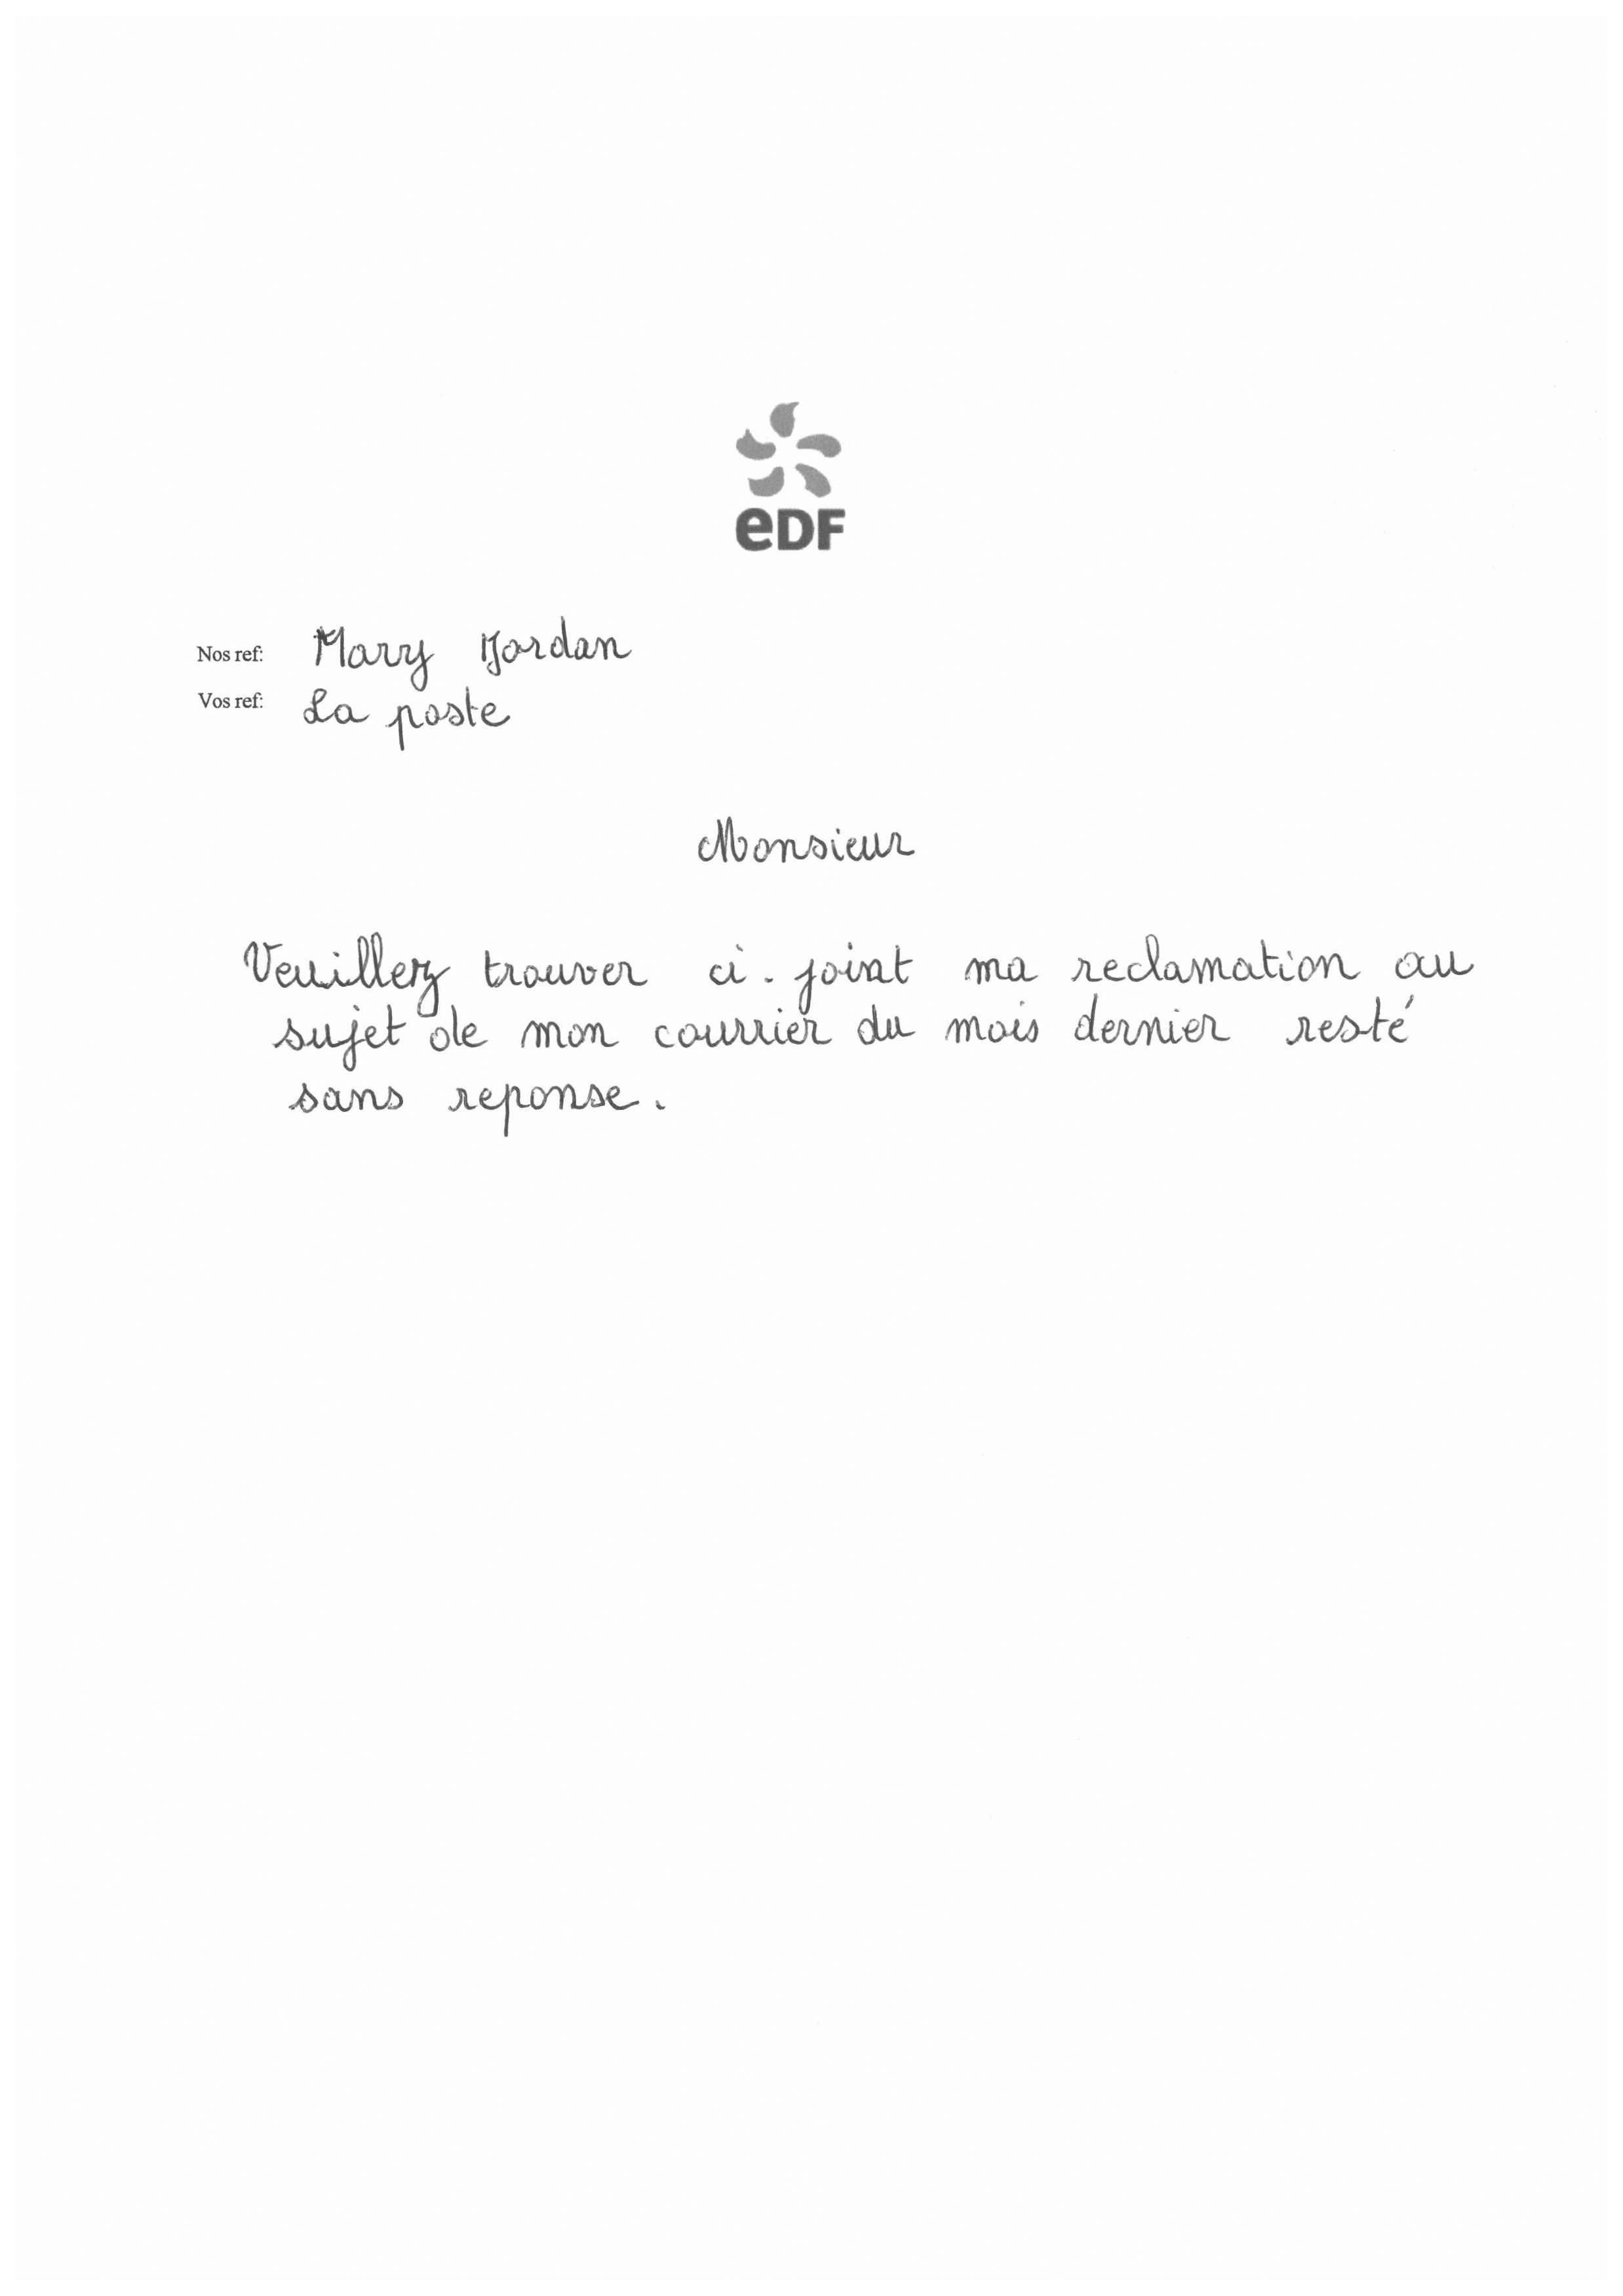 eDF
Nos ref: Mary Jordan
Vos ref: La poste
Monsieur
Veuillez trouver ci-joint ma reclamation au
sujet de mon courrier du mois dernier resté
sans reponse.